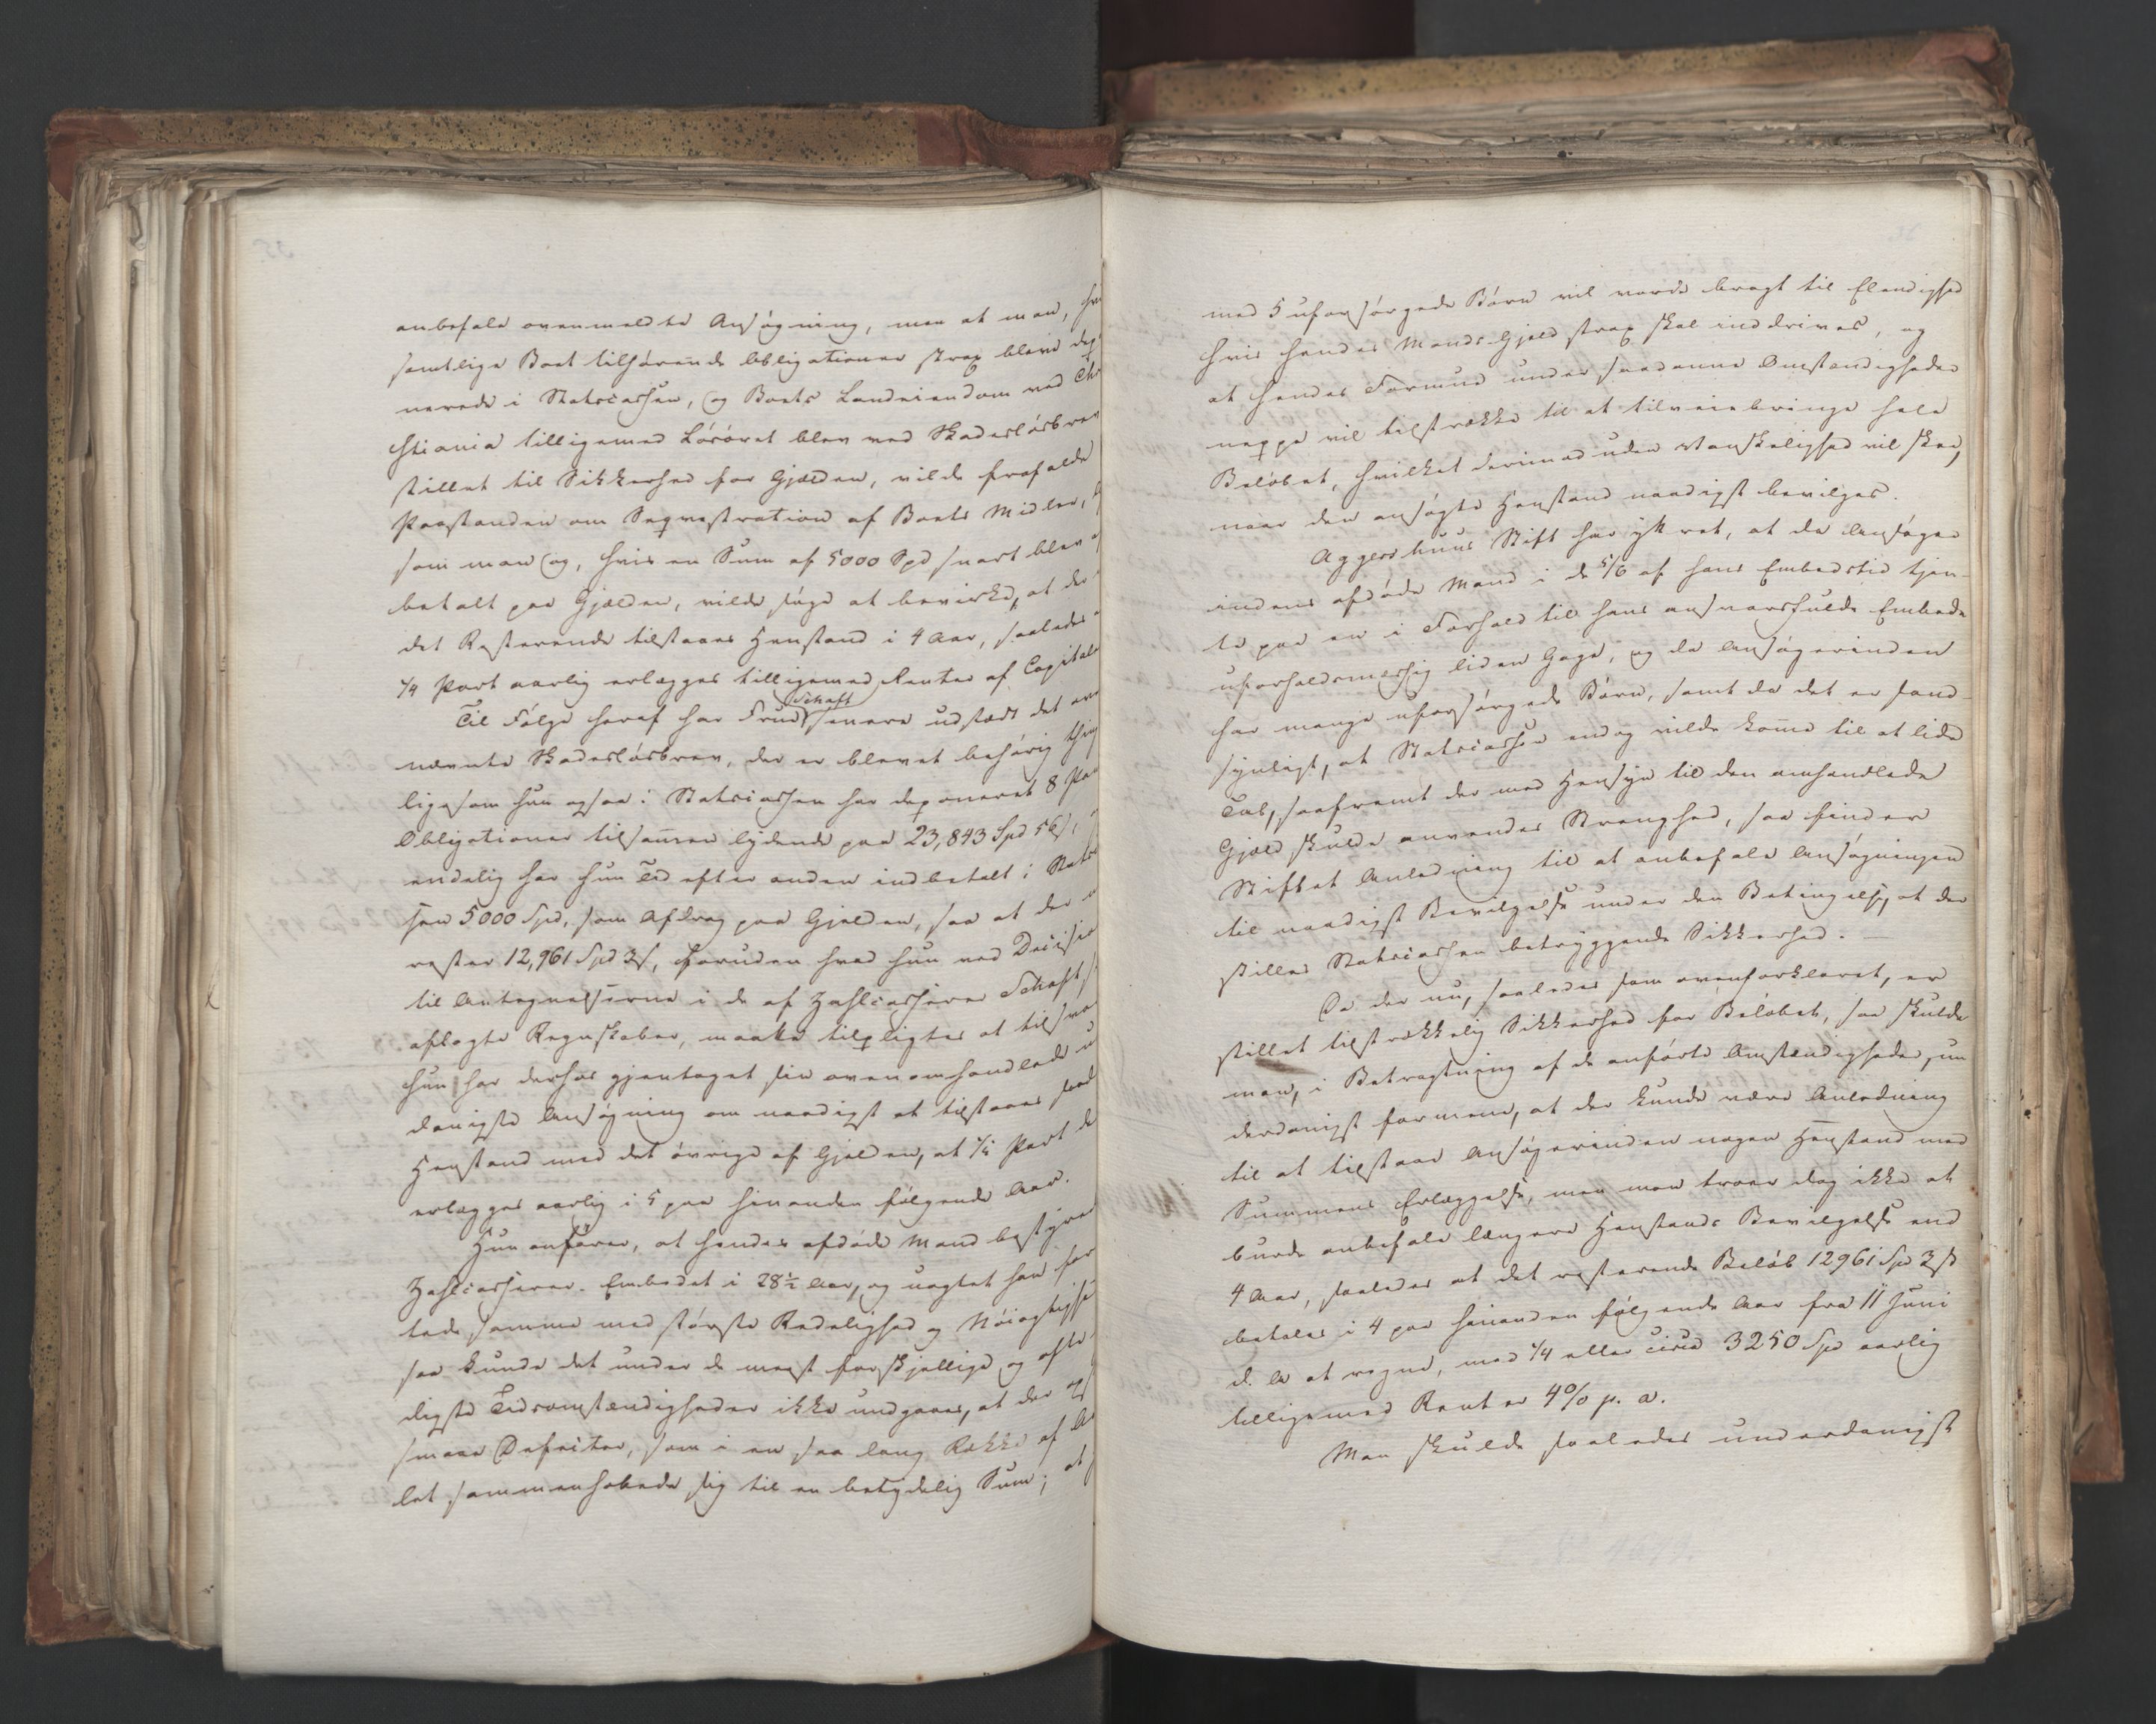 anbefale ovenmeldte Ansøgning, men at man,
samtlige Boet tilhørende Obligationer strax bleve
nerede i Statscassen, og Boets Landeiendom ved Chri
stiania tilligemed Løsøret blev ved Skadesløsbrev
stillet til Sikkerhed for Gjælden, vilde frafalde
Paastanden om Seqvestration af Boets Midler,
som man og, hvis en Sum af 5000 Spd snart blev
betalt paa Gjælden, vilde søge at bevirke, at der
det Resterende tilstaaes Henstand i 4 Aar, saaledes
1/4 Part aarlig erlægges tilligemed Renter af Capitalen
Til Følge heraf har Frue Schaft senere udstædt det oven
nævnte Skadesløsbrev, der er blevet behørig
ligesom hun ogsaa i Statscassen har deponeret 8
Obligationer tilsammen lydende paa 23,843 Spd 56 s,
endelig har hun Tid efter anden indbetalt i
sen 5000 Spd, som Afdrag paa Gjælden, saa at der
rester 12,961 Spd 3 s, foruden hvad hun ved Decision
til Antegnelserne i de af Zahlcasserer Schaft
aflagte Regnskaber, maatte tilpligtes at tilsvare
Hun har derhos gjentaget sin ovenomhandlede
danigste Ansøgning om naadigst at tilstaaes
Henstand med det øvrige af Gjælden, at Part
erlægges aarlig i 5 paa hinanden følgende Aar.
Hun anfører, at hendes afdøde Mand bestyrede
Zahlcasserer-Embedet i 28½ Aar, og uagtet han
tede samme med største Redelighed og Nøiagtighed
saa kunde det under de meest forskjellige og
digste Tidsomstændigheder ikke undgaaes, at der
smaae Defecter, som i en saa lang Række af
let sammenhobede sig til en betydelig Sum; at
med 5 uforsørgede Børn vil vorde bragt til Elendighed
hvis hendes Mands Gjæld strax skal inddrives, og
at hendes Formue under saadanne Omstændigheder
neppe vil tilstrække til at tilveiebringe hele
Beløbet, hvilket derimod uden Vanskelighed vil skee,
naar den ansøgte Henstand naadigst bevilges.
Aggershuus Stift har yttret, at da Ansøger
indens afdøde Mand i de 5/6 af hans Embedstid tjen-
te paa en i Forhold til hans ansvarsfulde Embede
uforholdsmæssig liden Gage, og da Ansøgerinden
har mange uforsørgede Børn, samt da det er sand-
synligt, at Statscassen endog vilde komme til at lide
Tab, saafremt der med Hensyn til den omhandlede
Gjæld skulde anvendes Strenghed, saa finder
Stiftet Anledning til at anbefale Ansøgningen
til naadigst Bevilgelse under den Betingelse, at der
stilles Statscassen betryggende Sikkerhed. —
Da der nu, saaledes som ovenforklaret, er
stillet tilstrækkelig Sikkerhed for Beløbet, saa skulde
man, i Betragtning af de anførte Omstændigheder, un
derdanigst formene, at der kunde være Anledning
til at tilstaae Ansøgerinden nogen Henstand med
Summens Erlæggelse, men man troer dog ikke at
burde anbefale længere Henstands Bevilgelse end
4 Aar, saaledes at det resterende Beløb 12961 Spd 3 s
betales i 4 paa hinanden følgende Aar fra 11 Juni
d. A. at regne, med 1/4 eller circa 3250 Spd aarlig
tilligemed Renter 4% p. a.
Man skulde saaledes underdanigst